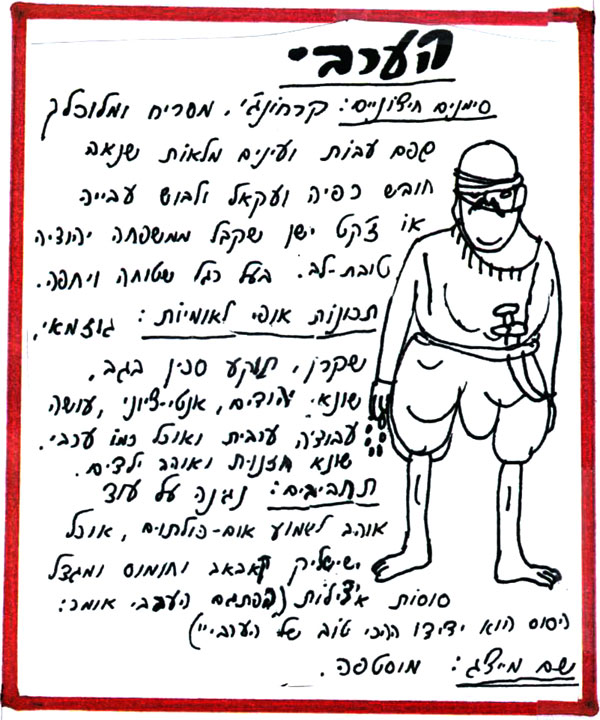 הערבי
סימנים חיצוניים: קרחונג'י. מסריח ומלוכלך
שפם עבות ועינים מלאות שנאה
חובש כפיה ועקאל ולבוש עבייה
או ז'קט ישן שקבל ממשפחה יהודיה
טובת-לב. בעל רגל שטוחה ויחפה.
תכונות אופי לאומיות: גוזמאי,
שקרן, תוקע סכין בגב,
שונא יהודים, אנטי-ציוני, עושה
עבודה ערבית ואוכל כמו ערבי.
שונא חזנות ואוהב ילדים.
תחביבים: נגנה על עוד
אוהב לשמוע אום-כולתום, אוכל
שישליק קבאב וחומוס ומגדל
סוסות אצילות (הפתגם הערבי אומר:
הסוס הוא ידידו ההכי טוב של הערבי")
שם מייצג: מוסטפה.